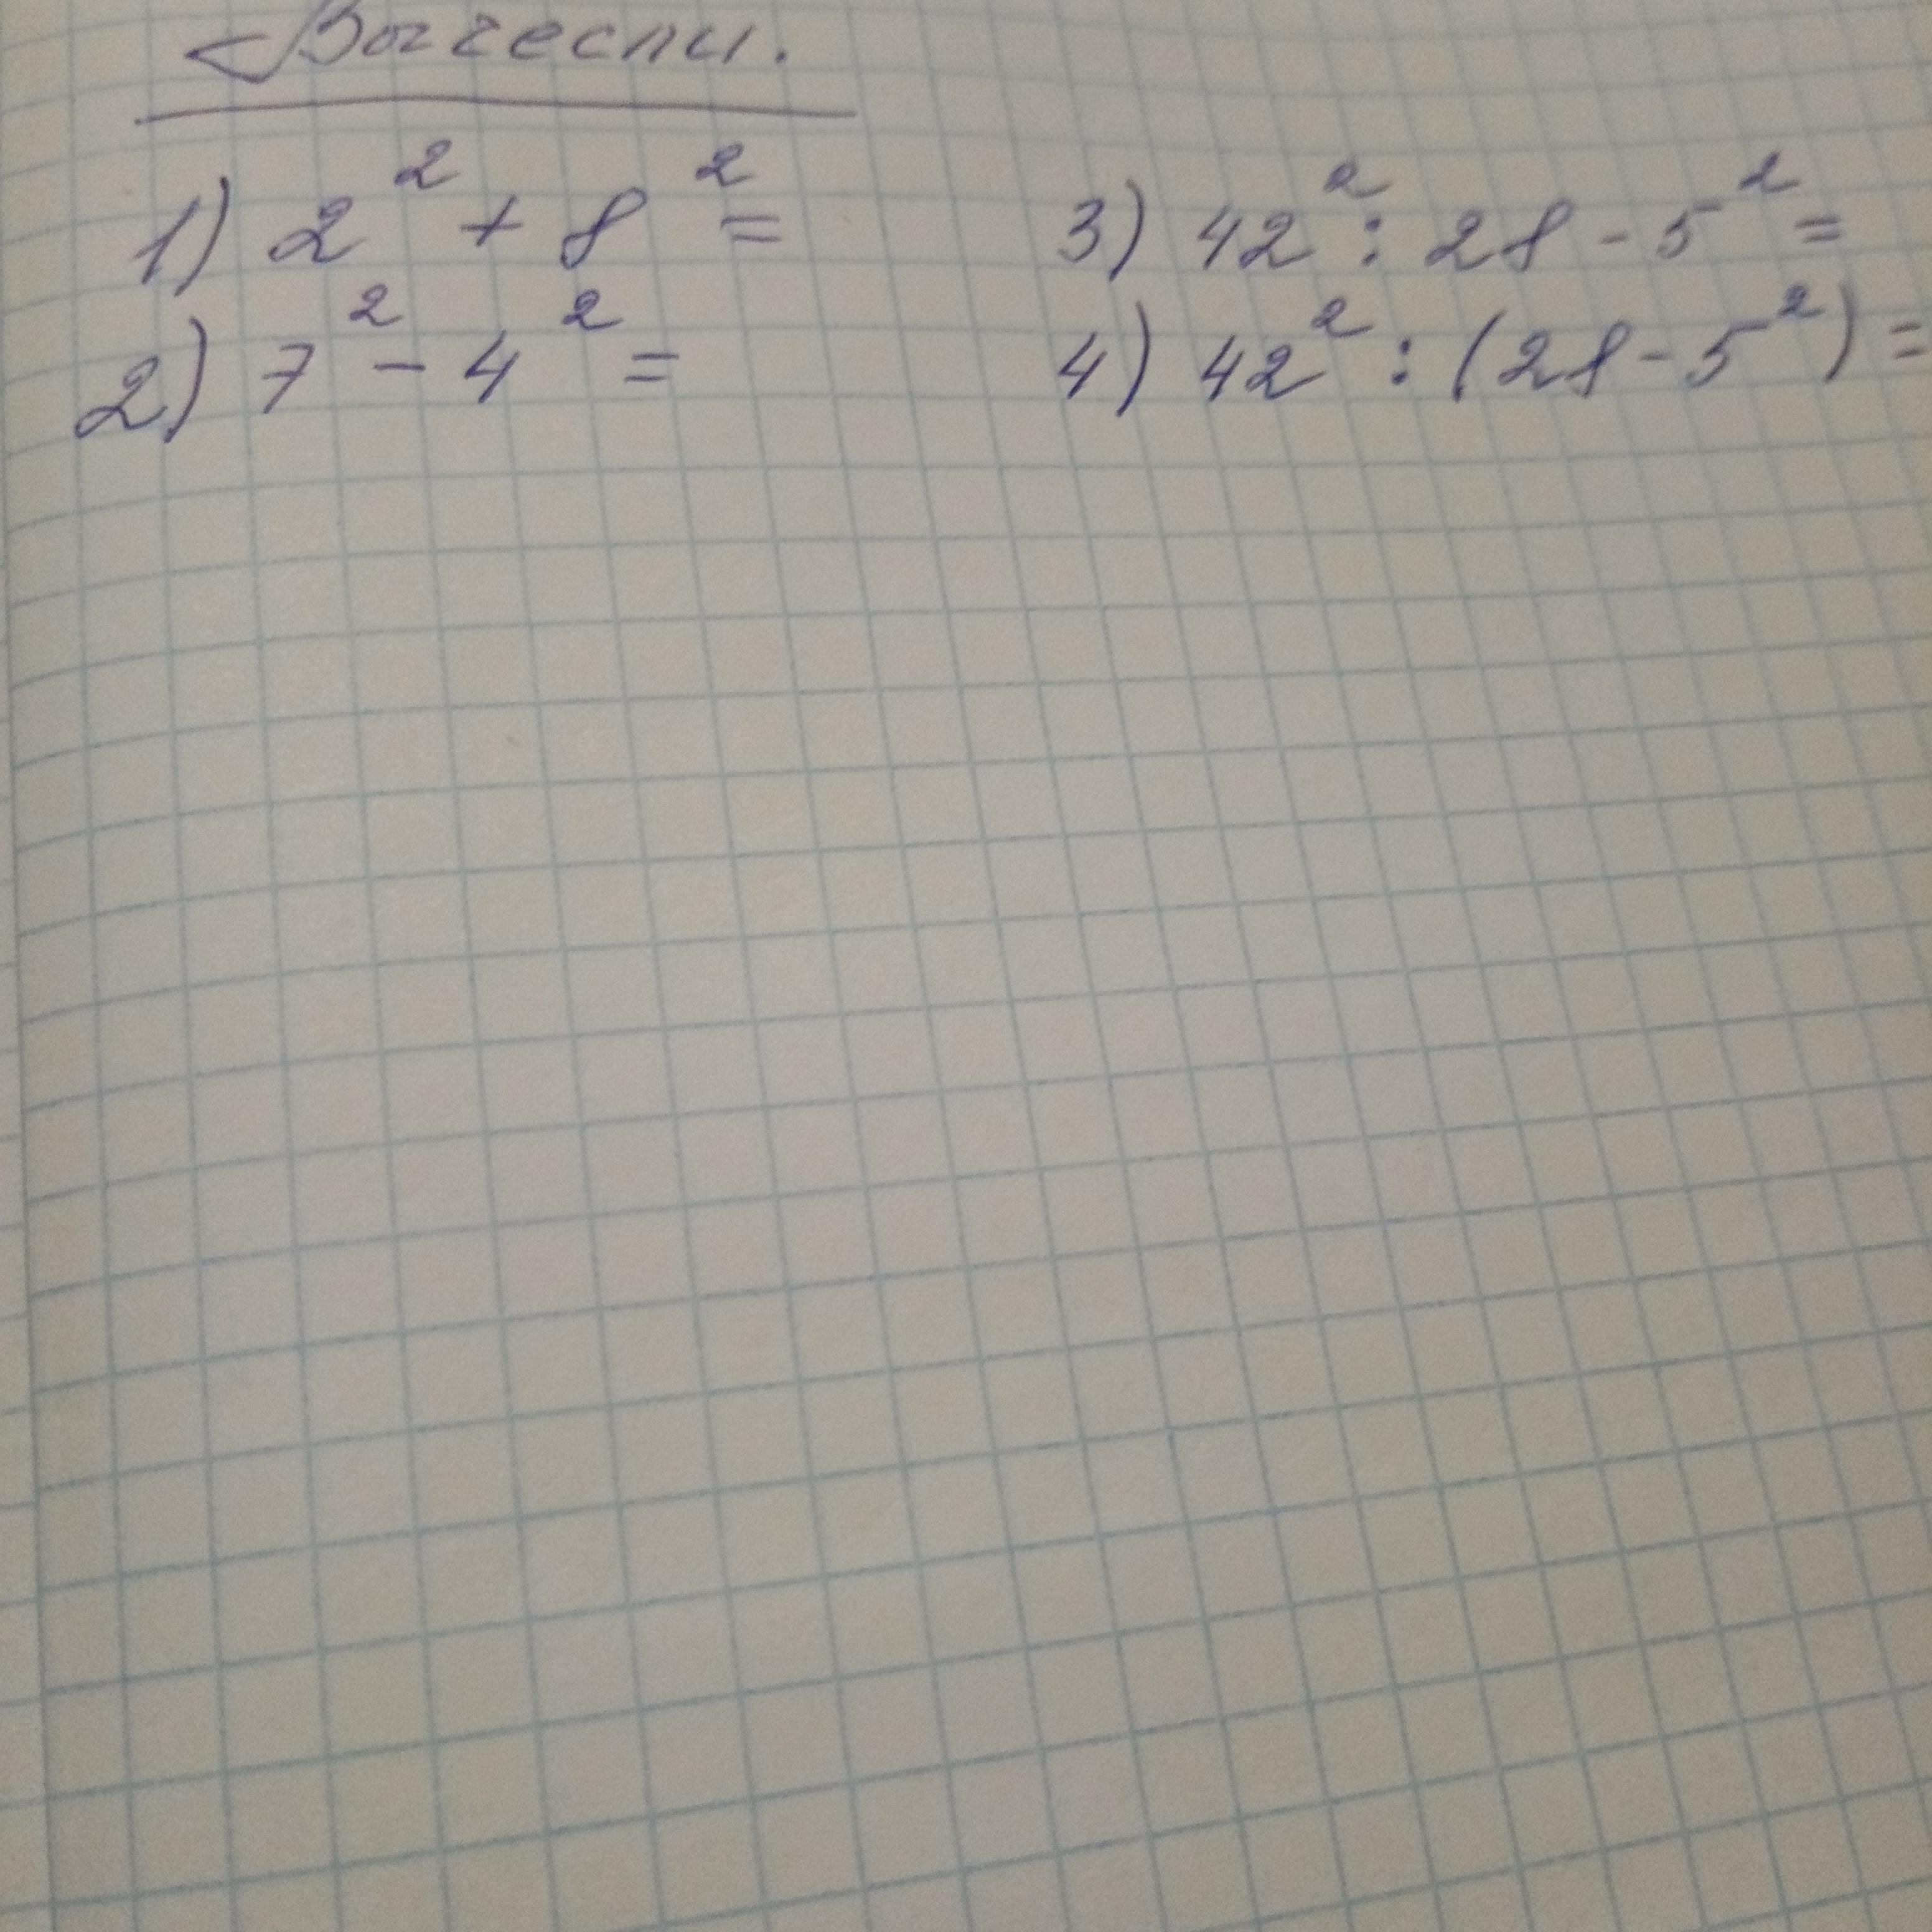 Вычесли.
1) 2² + 8² =
2) 7² - 4² =
3) 42² : 28 - 5² =
4) 42² : (28 - 5²) =